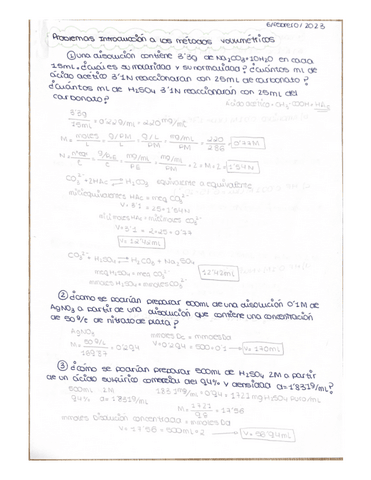 6/febrero/2023
Problemas Introducción a los métodos volumétricos
① una disolución contiene 3'3g de Na2CO3+10H2O en cada
15mL. ¿cuál es su molaridad y su normalidad? ¿cuántos mL de
ácido acético 3'1N reaccionarán con 25mL de carbonato?
¿cuántos mL de H2SO4 3'1N reaccionarán con 25mL del
carbonato?
ácido acético = CH3-COOH = HAc
3'3g
15mL = 0'22g/mL = 220mg/mL
M = moles/L = g/PM/L = g/L/PM = mg/mL/PM = 220/286 = 0'77M
CO3²⁻ + 2HAc ⇌ H2CO3 equivalente a equivalente
miliequivalentes HAc = meq CO3²⁻
V·3'1 = 25·1'54N
V·3'1 = 2·25·0'77
V = 12'42mL
CO3²⁻ + H2SO4 ⇌ H2CO3 + Na2SO4
meq H2SO4 = meq CO3²⁻
mmoles H2SO4 = mmoles CO3²⁻
12'42mL
② ¿cómo se podrían preparar 500mL de una disolución 0'1M de
AgNO3 a partir de una disolución que contiene una concentración
de 50g/L de nitrato de plata?
AgNO3
M = 50g/L
mmoles Dc = mmoles Da
V·0'294 = 500·0'1 → V = 170mL
③ ¿cómo se podrían preparar 500mL de H2SO4 2M a partir
de un ácido sulfúrico comercial del 94% y densidad d=1'831g/mL?
500mL 2M
94% d=1'831g/mL
mmoles disolución concentrada = mmoles Da